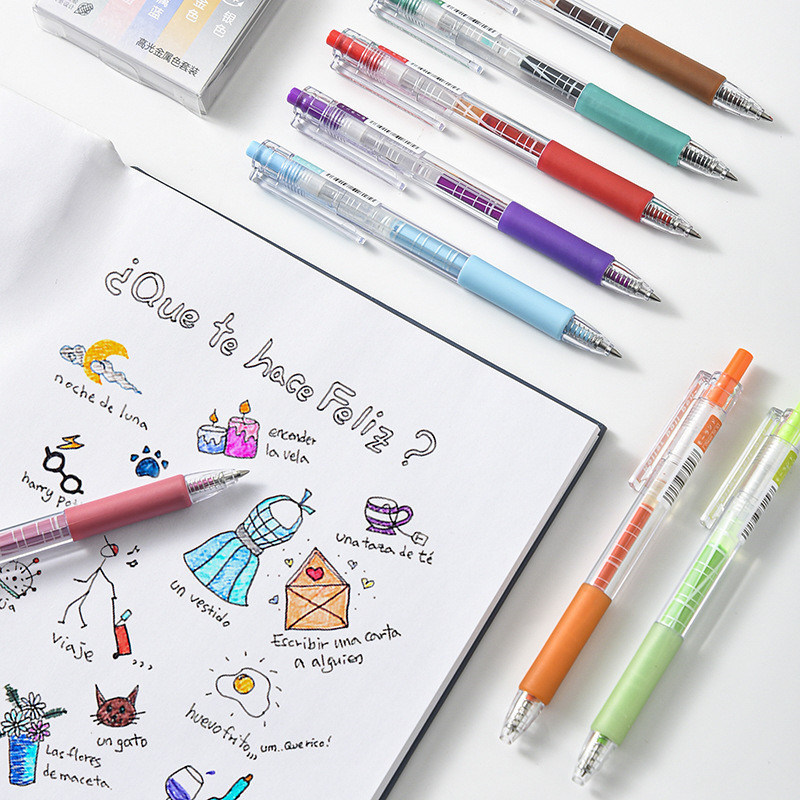 银色
金色
蓝
高光金属色套装
¿Que te hace Feliz?
noche de luna
encender
la vela
harry po
una taza de té
un vestido
Escribir una carta
a alguien
viaje
huevo frito,,, um.. Que rico!
un gato
Las flores
de maceta.